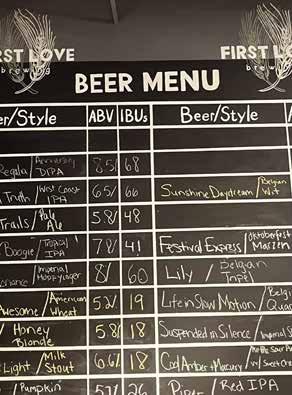 RST LOVE
brewing
FIRST LO
brewi
BEER MENU
er/Style ABV IBUs Beer/Style
Regala / Anniversary DIPA 8.5/ 68
Truth / West Coast IPA 6.5/ 66 Sunshine Daydream / Belgian Wit
Trails / Pale Ale 5.8/ 48
Boogie / Tropical IPA 7.8/ 41 Festival Express / Oktoberfest Marzen
/ Imperial 8/ 60 Lily / Belgian
Awesome / American Wheat 5.2/ 19 Life in Slow Motion / Belgi Qua
/ Honey Blonde 5.8/ 18 Suspended in Silence / Imperial S
Light / Milk Stout 6.6/ 18 Cool Amber + Mercury /
/ Pumpkin 5.7/ 26 / Red IPA